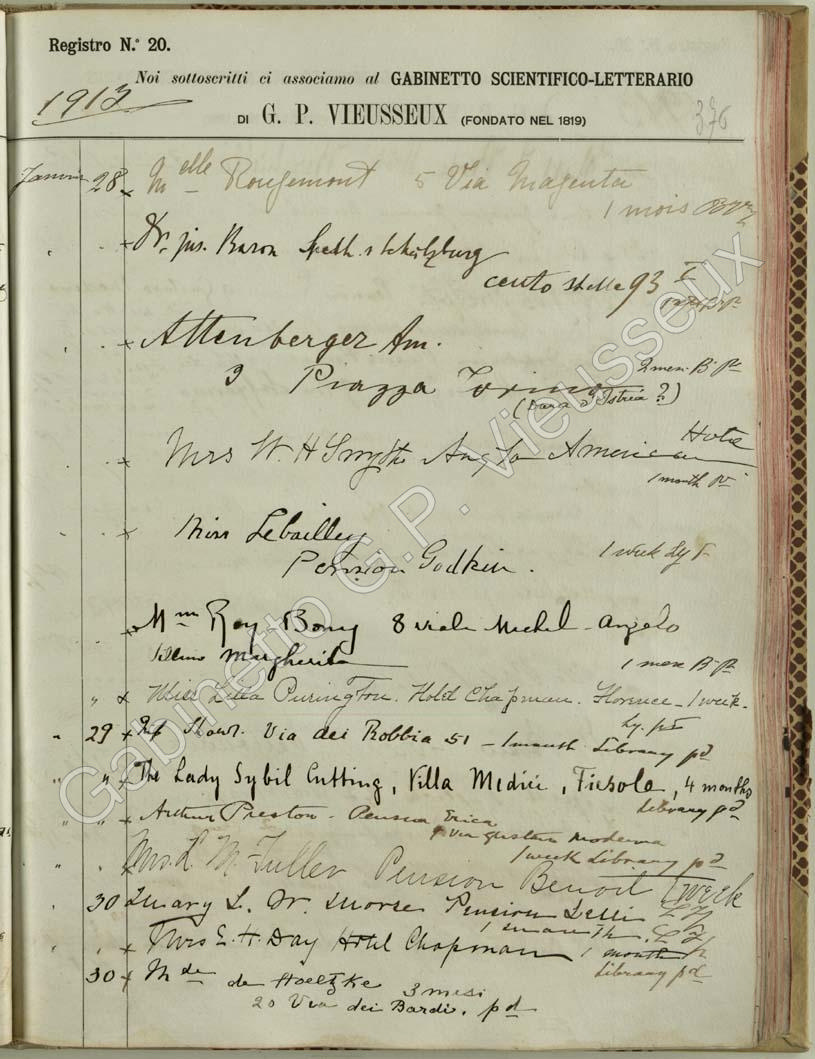 Registro N.° 20.
Noi sottoscritti ci associamo al GABINETTO SCIENTIFICO-LETTERARIO
1913
DI G. P. VIEUSSEUX (FONDATO NEL 1819)
376
28 Melle Rougemont 5 Via Magenta
1 mois
Dr. jus. Baron
cento stelle 93 I
Attenberger Am.
9 Piazza Torino
2 mesi B. pd
(Dara d'Istria?)
Mrs W. H Smythe Anglo American Hotel
1 month pd
Miss Lebailley
1 week Ly
Pension Godkin.
Mme Roy-Bony 8 viale Michel-Angelo
Margherita 1 mese B. pd
" x Miss Lilla Purington. Hotel Chapman. Florence - 1 week -
Ly. pd
" 29 x Via dei Robbia 51 - 1 month Library pd
" " x The Lady Sybil Cutting, Villa Medici, Fiesole, 4 months
Library pd
" " x Arthur Preston - Pension Erica
Via Gustavo Modena
1 week Library pd
Mrs. L. M. Fuller Pension Benoit 1 week
30 x Mary L. W. Morse Pension
1 month
" x Mrs E. H. Day Hotel Chapman 1 month
Library pd
30 x Mde de Hoeltzke 3 mesi
20 Via dei Bardi. pd
Gabinetto G.P. Vieusseux